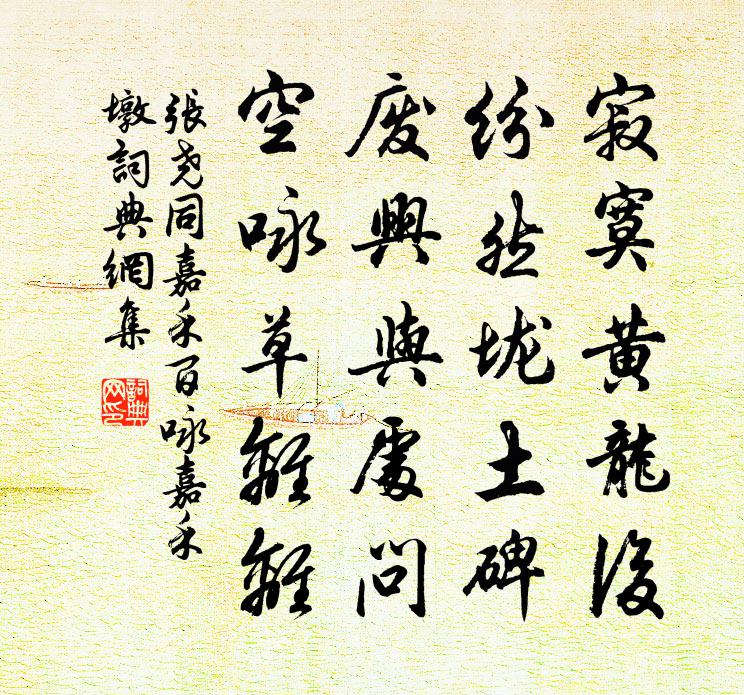 寂寞黄龍後
紛然垅土碑
废興與處問
空咏草離離
張尧同嘉禾百咏嘉禾
墩詞典網集
詞典
网印